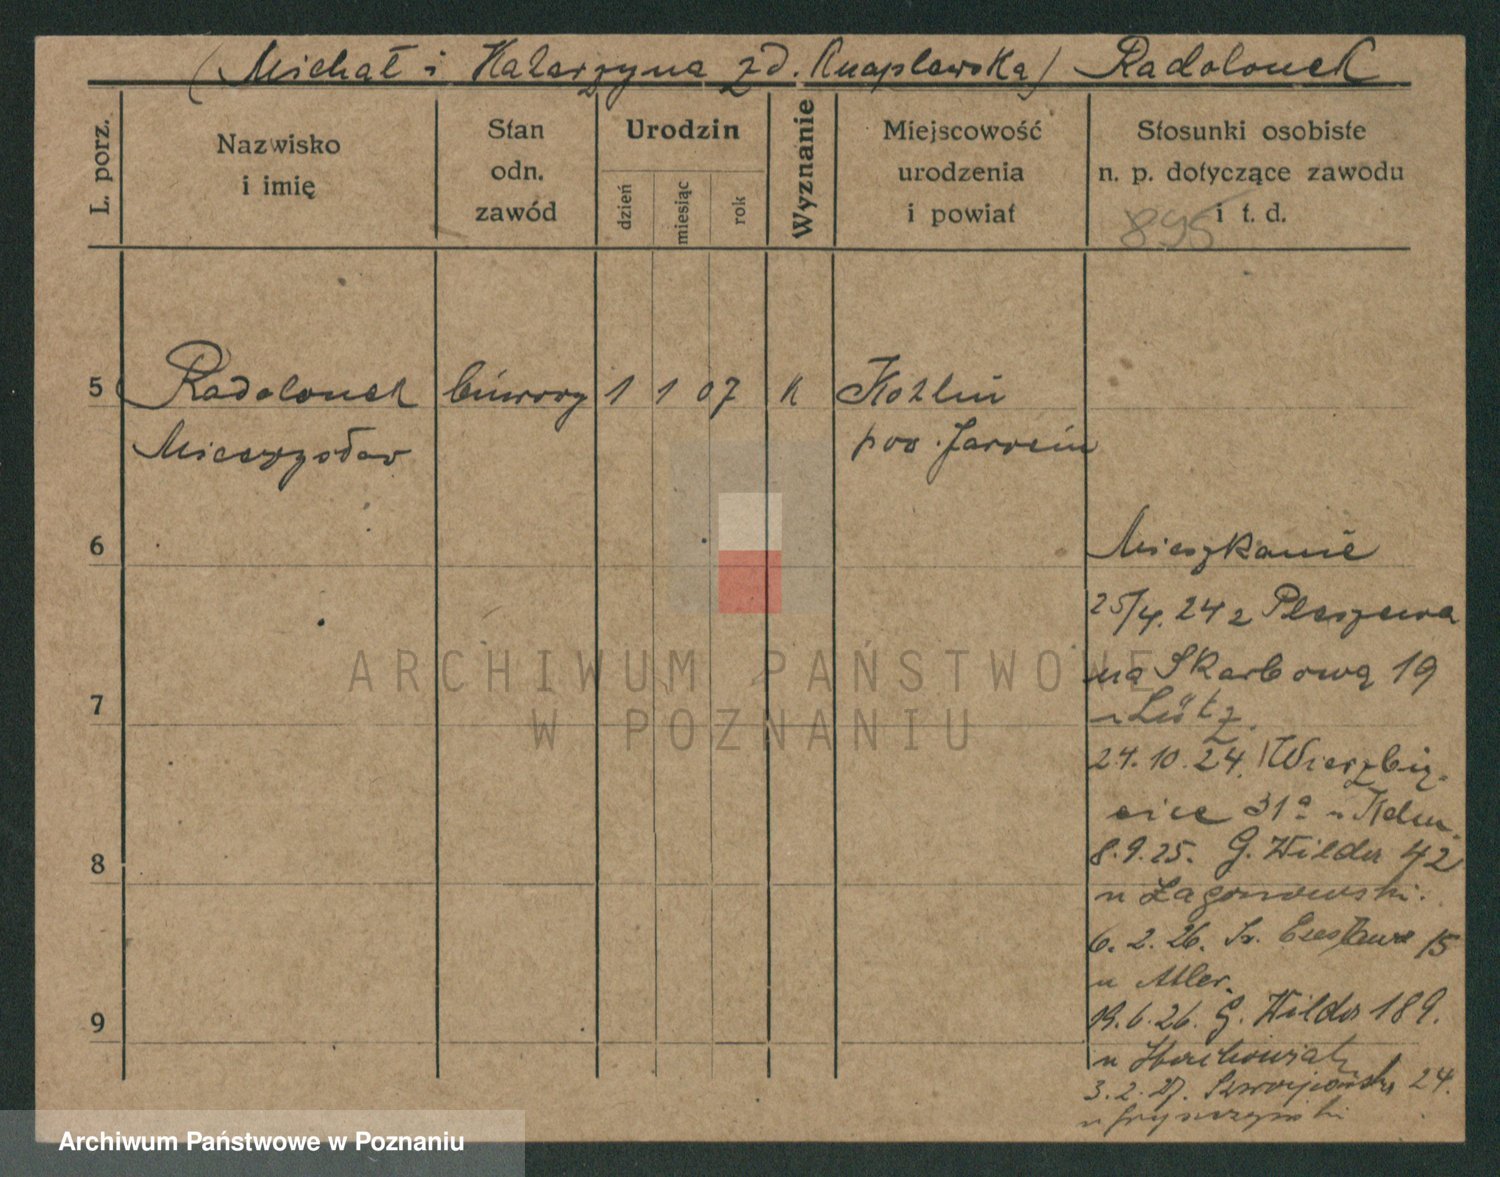 (Michał i Katarzyna zd. Knaplewska) Radolonek
L. porz.
Nazwisko
i imię
Stan
odn.
zawód
Urodzin
dzień
miesiąc
rok
Wyznanie
Miejscowość
urodzenia
i powiat
Stosunki osobiste
n. p. dotyczące zawodu
i t. d.
895
5 Radolonek biurowy 1 1 07 k Kotlin
Mieczysław pow. Jarocin
6
Mieszkanie
25/4. 24 z Pleszewa
na Skarbową 19
u
7
24.10.24. Wierzbię-
cice 31a u
8.9.25. G. Wilda 42
8
u Łagonowski.
6.2.26. Św. Czesława 15
u Adler.
19.6.26. G. Wilda 189.
9
u
3.2.27. 24.
u
ARCHIWUM PAŃSTWOWE
W POZNANIU
Archiwum Państwowe w Poznaniu